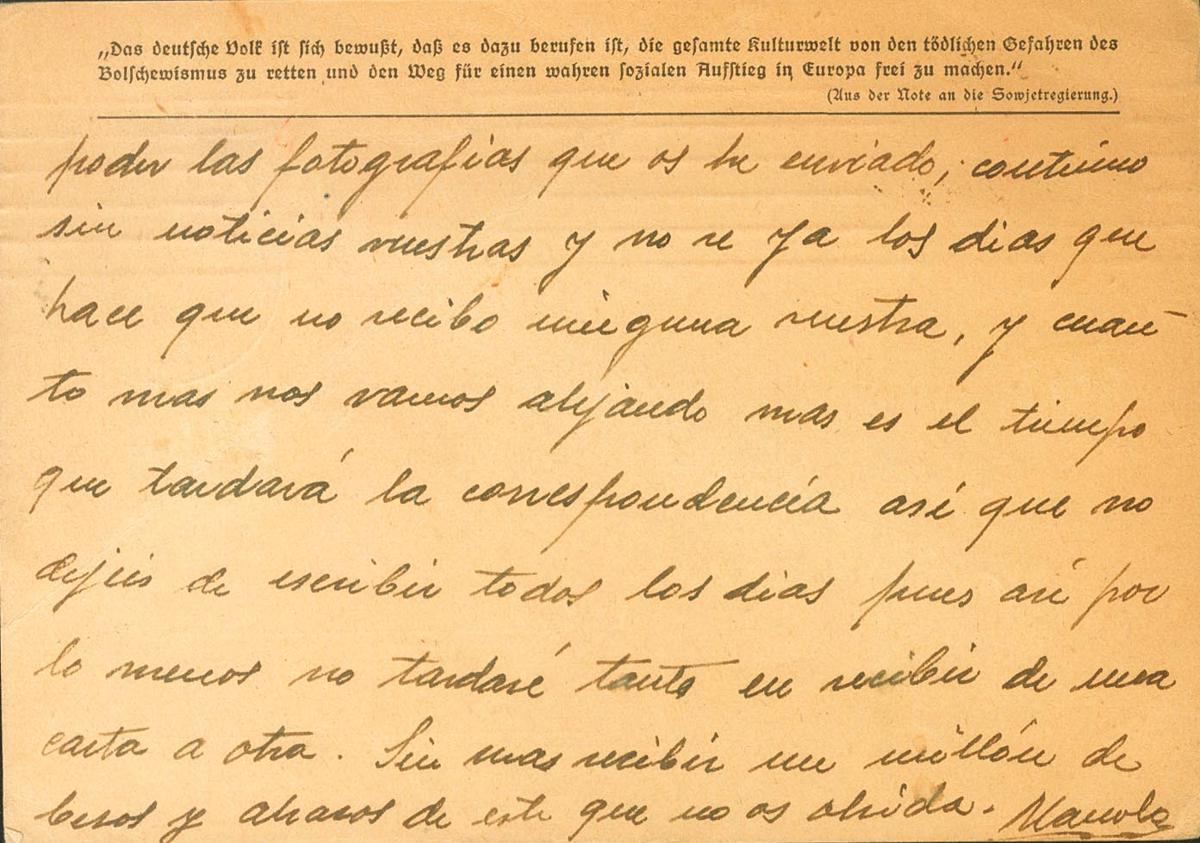 „Das deutsche Volk ist sich bewußt, daß es dazu berufen ist, die gesamte Kulturwelt von den tödlichen Gefahren des
Bolschewismus zu retten und den Weg für einen wahren sozialen Aufstieg in Europa frei zu machen.“
(Aus der Note an die Sowjetregierung.)
poder las fotografias que os he enviado, continuo
sin noticias vuestras y no se ya los dias que
hace que no recibo ninguna vuestra, y cuan
to mas nos vamos alejando mas es el tiempo
que tardará la correspondencia así que no
dejeis de escribir todos los dias pues así por
lo menos no tardaré tanto en recibir de una
carta a otra. Sin mas recibir un millón de
besos y abrasos de este que no os olvida. Manolo